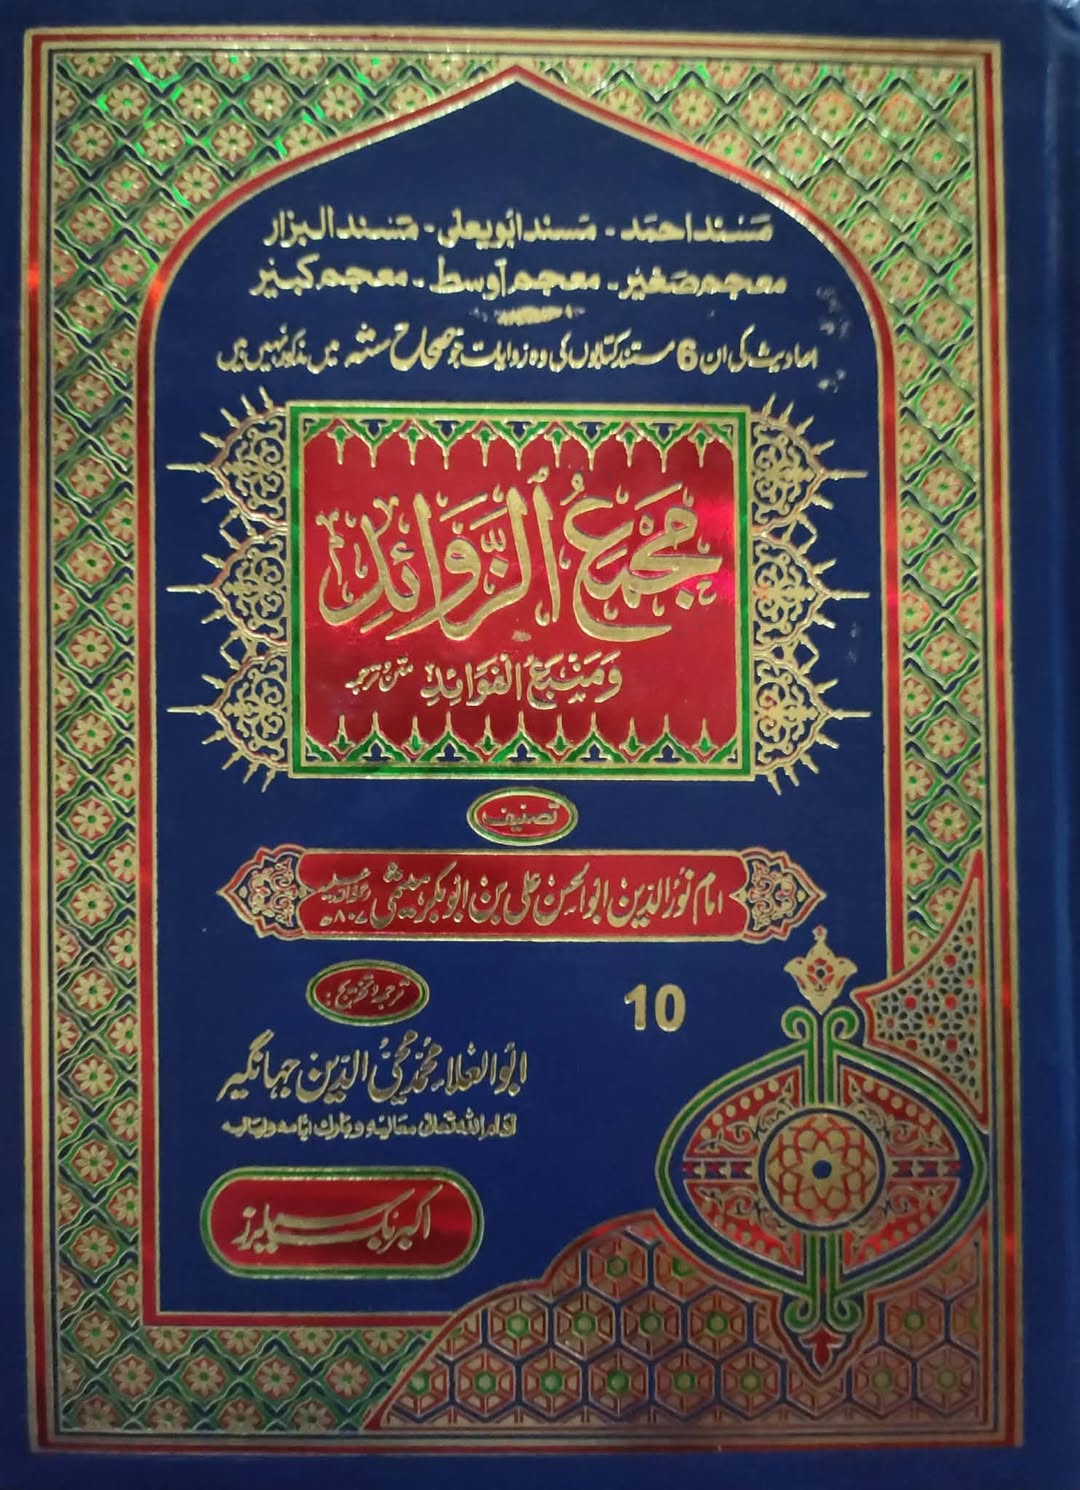 مسند احمد - مسند ابو يعلى - مسند البزار
معجم صغير - معجم اوسط - معجم كبير
احادیث کی ان 6 مستند کتابوں کی وہ روایات جو صحاح ستہ میں مذکور نہیں ہیں
مَجْمَعُ الزَّوَائِدِ
وَمَنْبَعُ الْفَوَائِدِ متن و ترجمہ
تصنیف
امام نور الدین ابو الحسن علی بن ابو بکر ہیثمی ۸۰۷ھ
ترجمہ و تخریج:
10
ابو العلاء محمد محی الدین جہانگیر
ادام اللہ تعالیٰ معالیہ و بارک ایامہ ولیالیہ
اکبر بک سیلرز